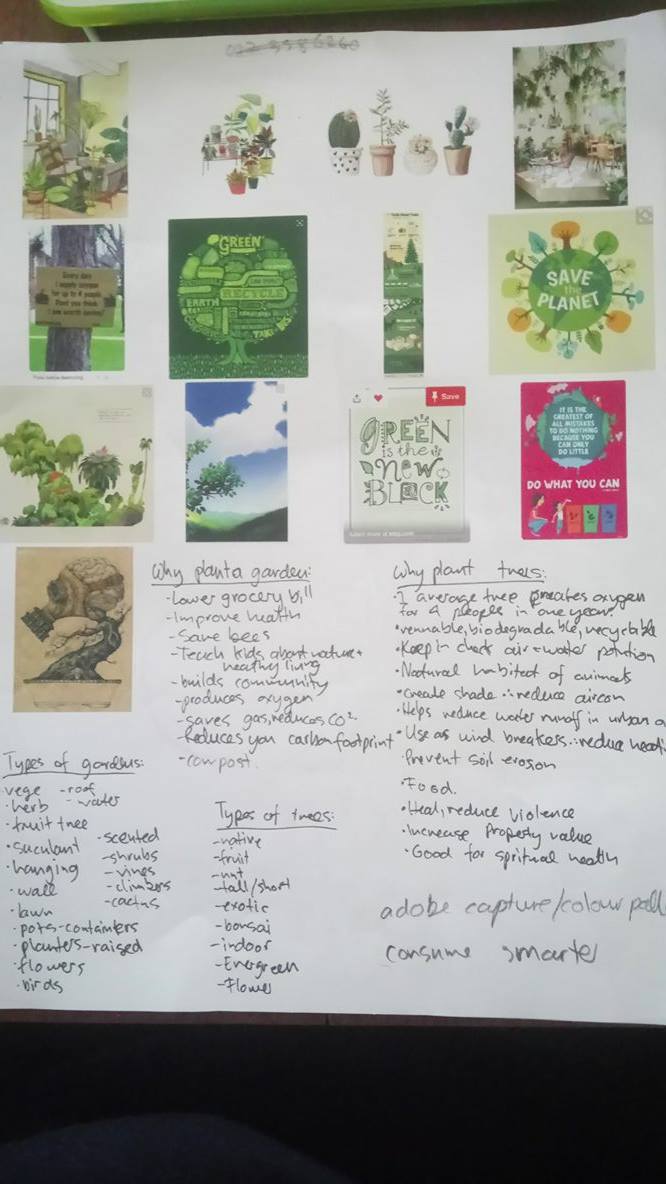 Every day
I supply oxygen
for up to 4 people
Dont you think
I am worth saving?
GREEN
RECYCLE
EARTH
SAVE
the
PLANET
Save
GREEN
is the
New
BLOCK
IT IS THE
GREATEST OF
ALL MISTAKES
TO DO NOTHING
BECAUSE YOU
CAN ONLY
DO LITTLE
DO WHAT YOU CAN
Why plant a garden:
-Lower grocery bill
-Improve health
-Save bees
-Teach kids about nature+
healthy living
-builds community
-produces oxygen
-saves gas, reduces CO2.
-Reduces you carbon footprint
-compost.
Why plant trees:
•1 average tree creates oxygen
for 4 people in one year
•rennable, biodegradable, recyclable
•Keep in check air+water polution
•Natural habitat of animals
•create shade ∴ reduce aircon
•Helps reduce water runoff in urban a
•Use as wind breakers ∴ reduce heati
•Prevent soil erosion
•Food.
•Heal, reduce violence
•Increase Property value
•Good for spritual health
Types of gardens:
•vege -roof
•herb -water
•fruit tree
•suculant
•hanging
•wall
•lawn
•pots-containers
•planters-raised
•flowers
•birds
•scented
-shrubs
-vines
-climbers
-cactus
Types of trees:
-native
-fruit
-nut
-tall/short
-exotic
-bonsai
-indoor
-Energreen
-Flower
adobe capture/colour pall
consume smarter